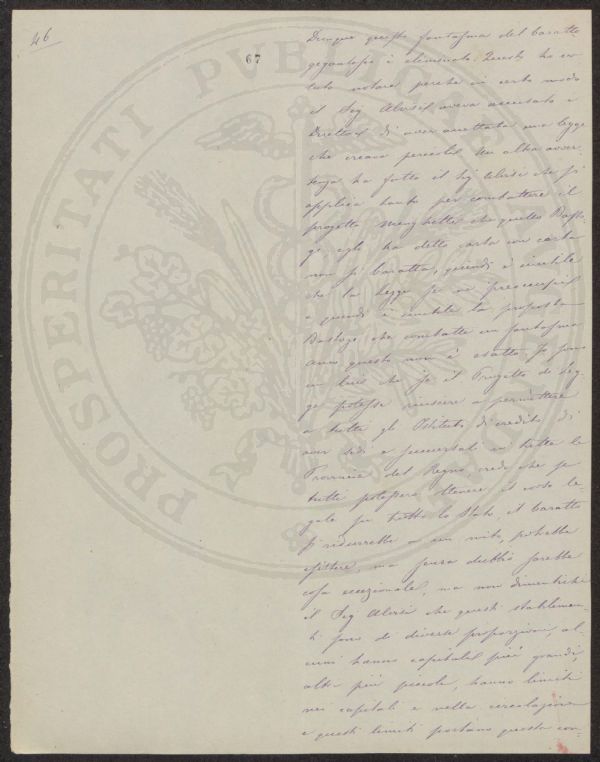 46
67
PROSPERITATI PUBLICAE
Dunque questo fantasma del baratto
gigantesco è eliminato. Questo ho vo-
luto notare perchè in certo modo
il Sig Alvisi aveva accusato i
Direttori di aver accettata una legge
che creava pericoli. Un altra avver-
tenza ha fatto il Sig Alvisi che si
applica tanto per combattere il
progetto Minghetti che quello Basto-
gi egli ha detto carta con carta
non si baratta, quindi è inutile
che la Legge se ne preoccupi
e quindi è inutile la proposta
Bastogi che combatte un fantasma
anche questo non è esatto. Io sono
con lui che se il Progetto di Leg-
ge potesse riuscire a permettere
a tutti gli Istituti di credito di
aver sedi e succursali in tutte le
Provincie del Regno, credo che se
tutti potessero ottenere il corso le-
gale per tutto lo Stato, il baratto
si ridurrebbe a un mito, potrebbe
esistere, ma senza dubbio sarebbe
cosa eccezionale, ma non dimentichi
il Sig Alvisi che questi stabilimen-
ti sono di diverse proporzioni, al-
cuni hanno capitali più grandi,
altri più piccoli, hanno limiti
nei capitali e nella circolazione
e questi limiti portano questa con-